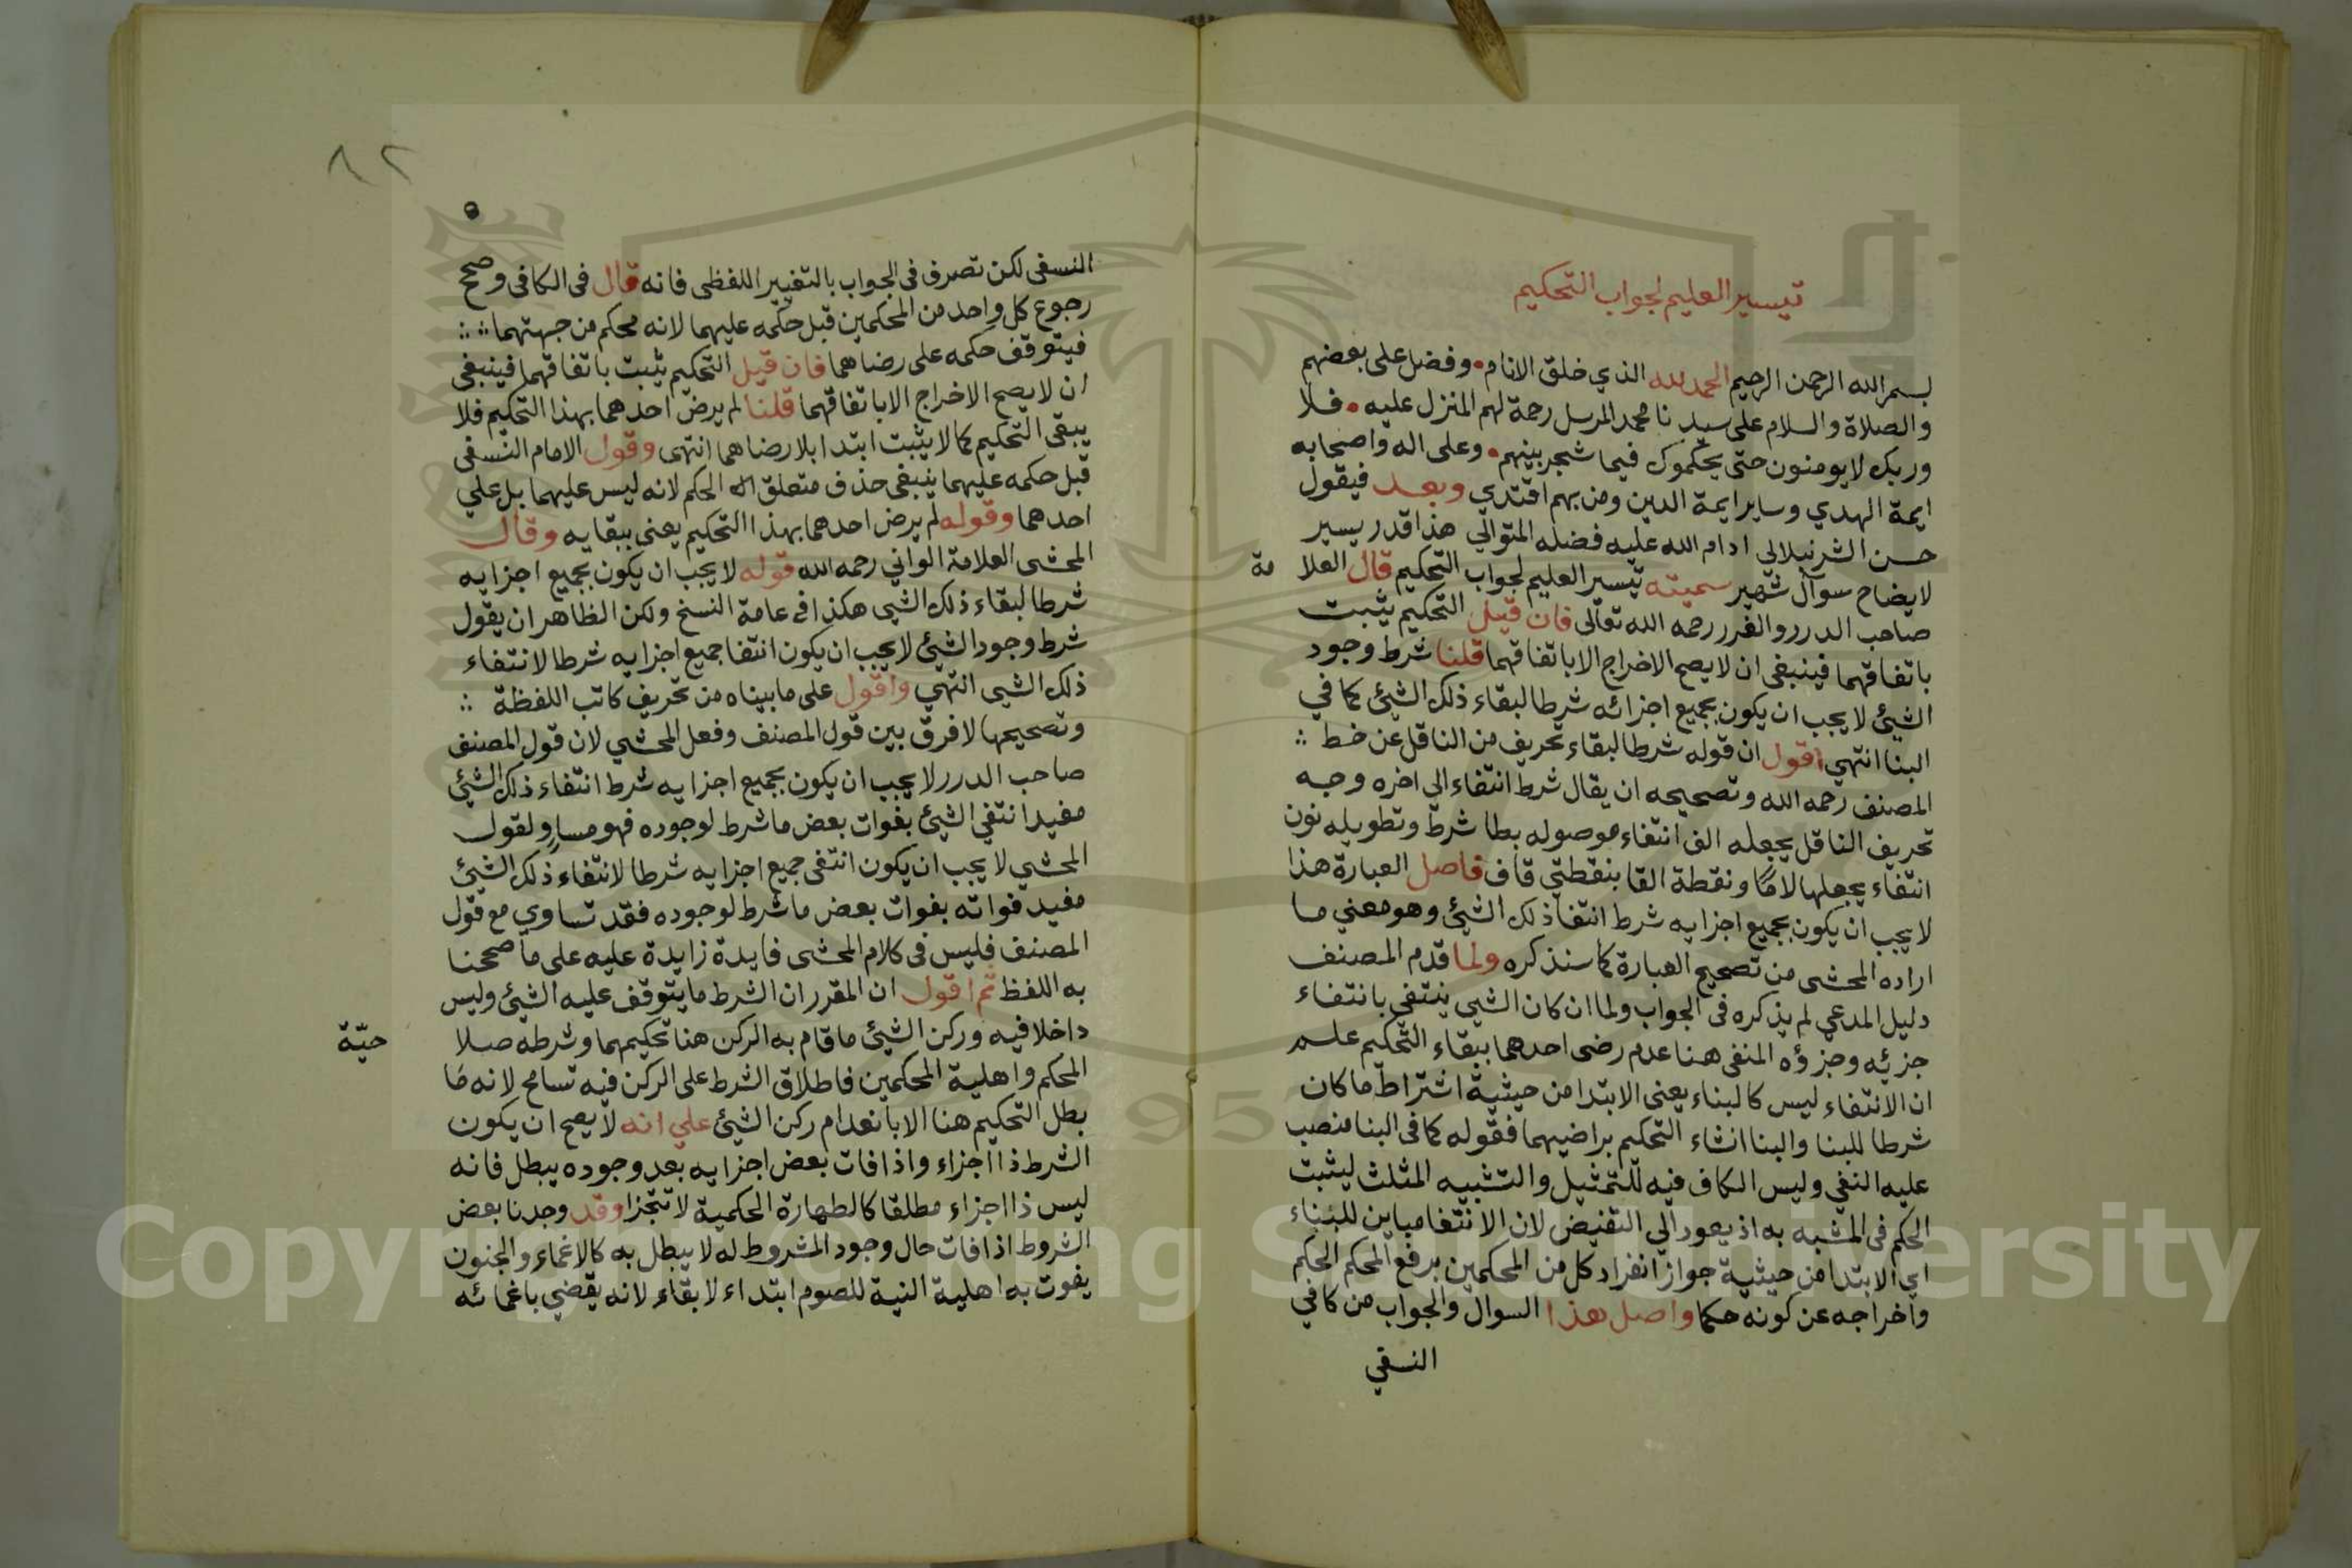 تيسير العليم لجواب التحكيم
بسم الله الرحمن الرحيم الحمد لله الذي خلق الانام • وفضل على بعضهم
والصلاة والسلام على سيدنا محمد المرسل رحمة لهم المنزل عليه • فلا
وربك لا يومنون حتى يحكموك فيما شجر بينهم • وعلى اله واصحابه
ايمة الهدي وساير ايمة الدين ومن بهم اقتدي وبعد فيقول
حسن الشرنبلالي ادام الله عليه فضله المتوالي هذا قدر يسير
لايضاح سوآل شهير سميته تيسير العليم لجواب التحكيم قال العلا مة
صاحب الدرر والغرر رحمه الله تعالى فان قيل التحكيم يثبت
باتفاقهما فينبغي ان لا يصح الاخراج الا باتفاقهما قلنا شرط وجود
الشيئ لا يجب ان يكون بجميع اجزائه شرطا لبقاء ذلك الشيئ كما في
البنا انتهي اقول ان قوله شرطا لبقاء تحريف من الناقل عن خط ؞
المصنف رحمه الله وتصحيحه ان يقال شرط انتفاء الى اخره وجه
تحريف الناقل بجعله الف انتفاء موصوله بطا شرط وتطويله نون
انتفاء بجعلها لامًا ونقطة الفا بنقطتي قاف فاصل العبارة هذا
لا يجب ان يكون بجميع اجزايه شرط انتفا ذلك الشيئ وهو معني ما
اراده المحشى من تصحيح العبارة كما سنذكره ولما قدم المصنف
دليل المدعي لم يذكره فى الجواب ولما ان كان الشيى ينتفى بانتفاء
جزئه وجزؤه المنفى هنا عدم رضى احدهما ببقاء التحكيم علم
ان الانتفاء ليس كالبناء يعنى الابتدا من حيثية اشتراط ما كان
شرطا للبنا والبنا انشاء التحكيم براضيهما فقوله كما فى البنا منصب
عليه النفي وليس الكاف فيه للتمثيل والتشبيه المثلث ليثبت
الحكم فى المشبه به اذ يعود الي النقيض لان الانتفا مباين للبناء
اي الابتدا من حيثية جواز انفراد كل من المحكمين برفع المحكم الحكم
واخراجه عن كونه حكما واصل هذا السوال والجواب من كافي
النسفي
٨٢
النسفى لكن تصرف فى الجواب بالتغيير اللفظى فانه قال فى الكافى وصح
رجوع كل واحد من المحكمين قبل حكمه عليهما لانه محكم من جهتهما ؞ ؞
فيتوقف حكمه على رضاهما فان قيل التحكيم يثبت باتفاقهما فينبغى
ان لا يصح الاخراج الا باتفاقهما قلنا لم يرض احدهما بهذا التحكيم فلا
يبقى التحكيم كما لا يثبت ابتدا بلا رضاهما انتهى وقول الامام النسفى
قبل حكمه عليهما ينبغى حذف متعلق الحكم لانه ليس عليهما بل علي
احدهما وقوله لم يرض احدهما بهذا التحكيم يعنى ببقايه وقال
المحشى العلامة الواني رحمه الله قوله لا يجب ان يكون بجميع اجزايه
شرطا لبقاء ذلك الشيى هكذا فى عامة النسخ ولكن الظاهر ان يقول
شرط وجود الشيئ لا يجب ان يكون انتفا جميع اجزايه شرطا لانتفاء
ذلك الشيى انتهي واقول على ما بيناه من تحريف كاتب اللفظة ؞
وتصحيحها لا فرق بين قول المصنف وفعل المحشي لان قول المصنف
صاحب الدرر لا يجب ان يكون بجميع اجزايه شرط انتفاء ذلك الشيئ
مفيد انتفي الشيئ بفوات بعض ما شرط لوجوده فهو مساو لقول
المحشي لا يجب ان يكون انتفى جميع اجزايه شرطا لانتفاء ذلك الشيئ
مفيد فواته بفوات بعض ما شرط لوجوده فقد تساوي مع قول
المصنف فليس فى كلام المحشى فايدة زايدة عليه على ما صححنا
به اللفظ ثم اقول ان المقرر ان الشرط ما يتوقف عليه الشيئ وليس
داخلا فيه وركن الشيئ ما قام به الركن هنا تحكيمهما وشرطه صلا حيّة
المحكم واهلية المحكمين فاطلاق الشرط على الركن فيه تسامح لانه مَا
بطل التحكيم هنا الا بانعدام ركن الشيئ علي انه لا يصح ان يكون
الشرط ذا اجزاء واذا فات بعض اجزايه بعد وجوده يبطل فانه
ليس ذا اجزاء مطلقا كالطهارة الحكمية لا تتجزا وقد وجدنا بعض
الشروط اذا فات حال وجود المشروط له لا يبطل به كالاغماء والجنون
يفوت به اهلية النية للصوم ابتداء لا بقاء لانه يقضي باغمائه
Copyright © King Saud University
1957